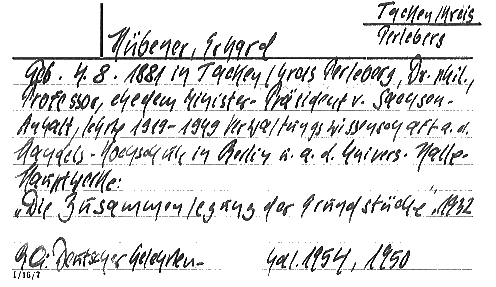 Tacken/Kreis
Perleberg
Hübener, Erhard
Geb. 4.8.1881 in Tacken/Kreis Perleberg, Dr. phil.,
Professor, ehedem Minister-Präsident v. Sachsen-
Anhalt, lehrte 1919-1949 Verwaltungswissenschaft a.d.
Handels-Hochschule in Berlin u. a. d. Univers. Halle.
Hauptwerke:
„Die Zusammenlegung der Grundstücke", 1932
Deutscher Gelehrten- Kal. 1954, 1950
1/16/7